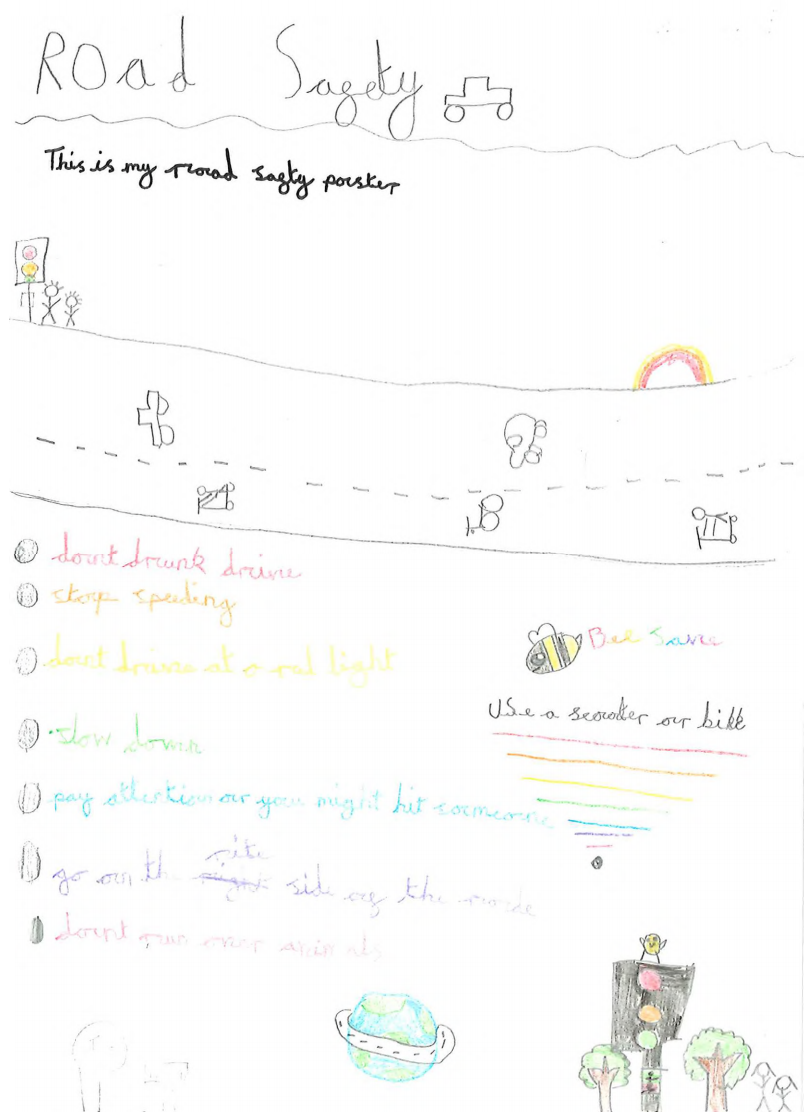 ROad Sagety
This is my rroad sagty porster
dornt drunk drive
storp speeding
dornt drive at a red light
Bee Save
slow down
Use a scooter or bike
pay attention or you might hit someone
rite
go on the right side og the rode
dornt run over animals